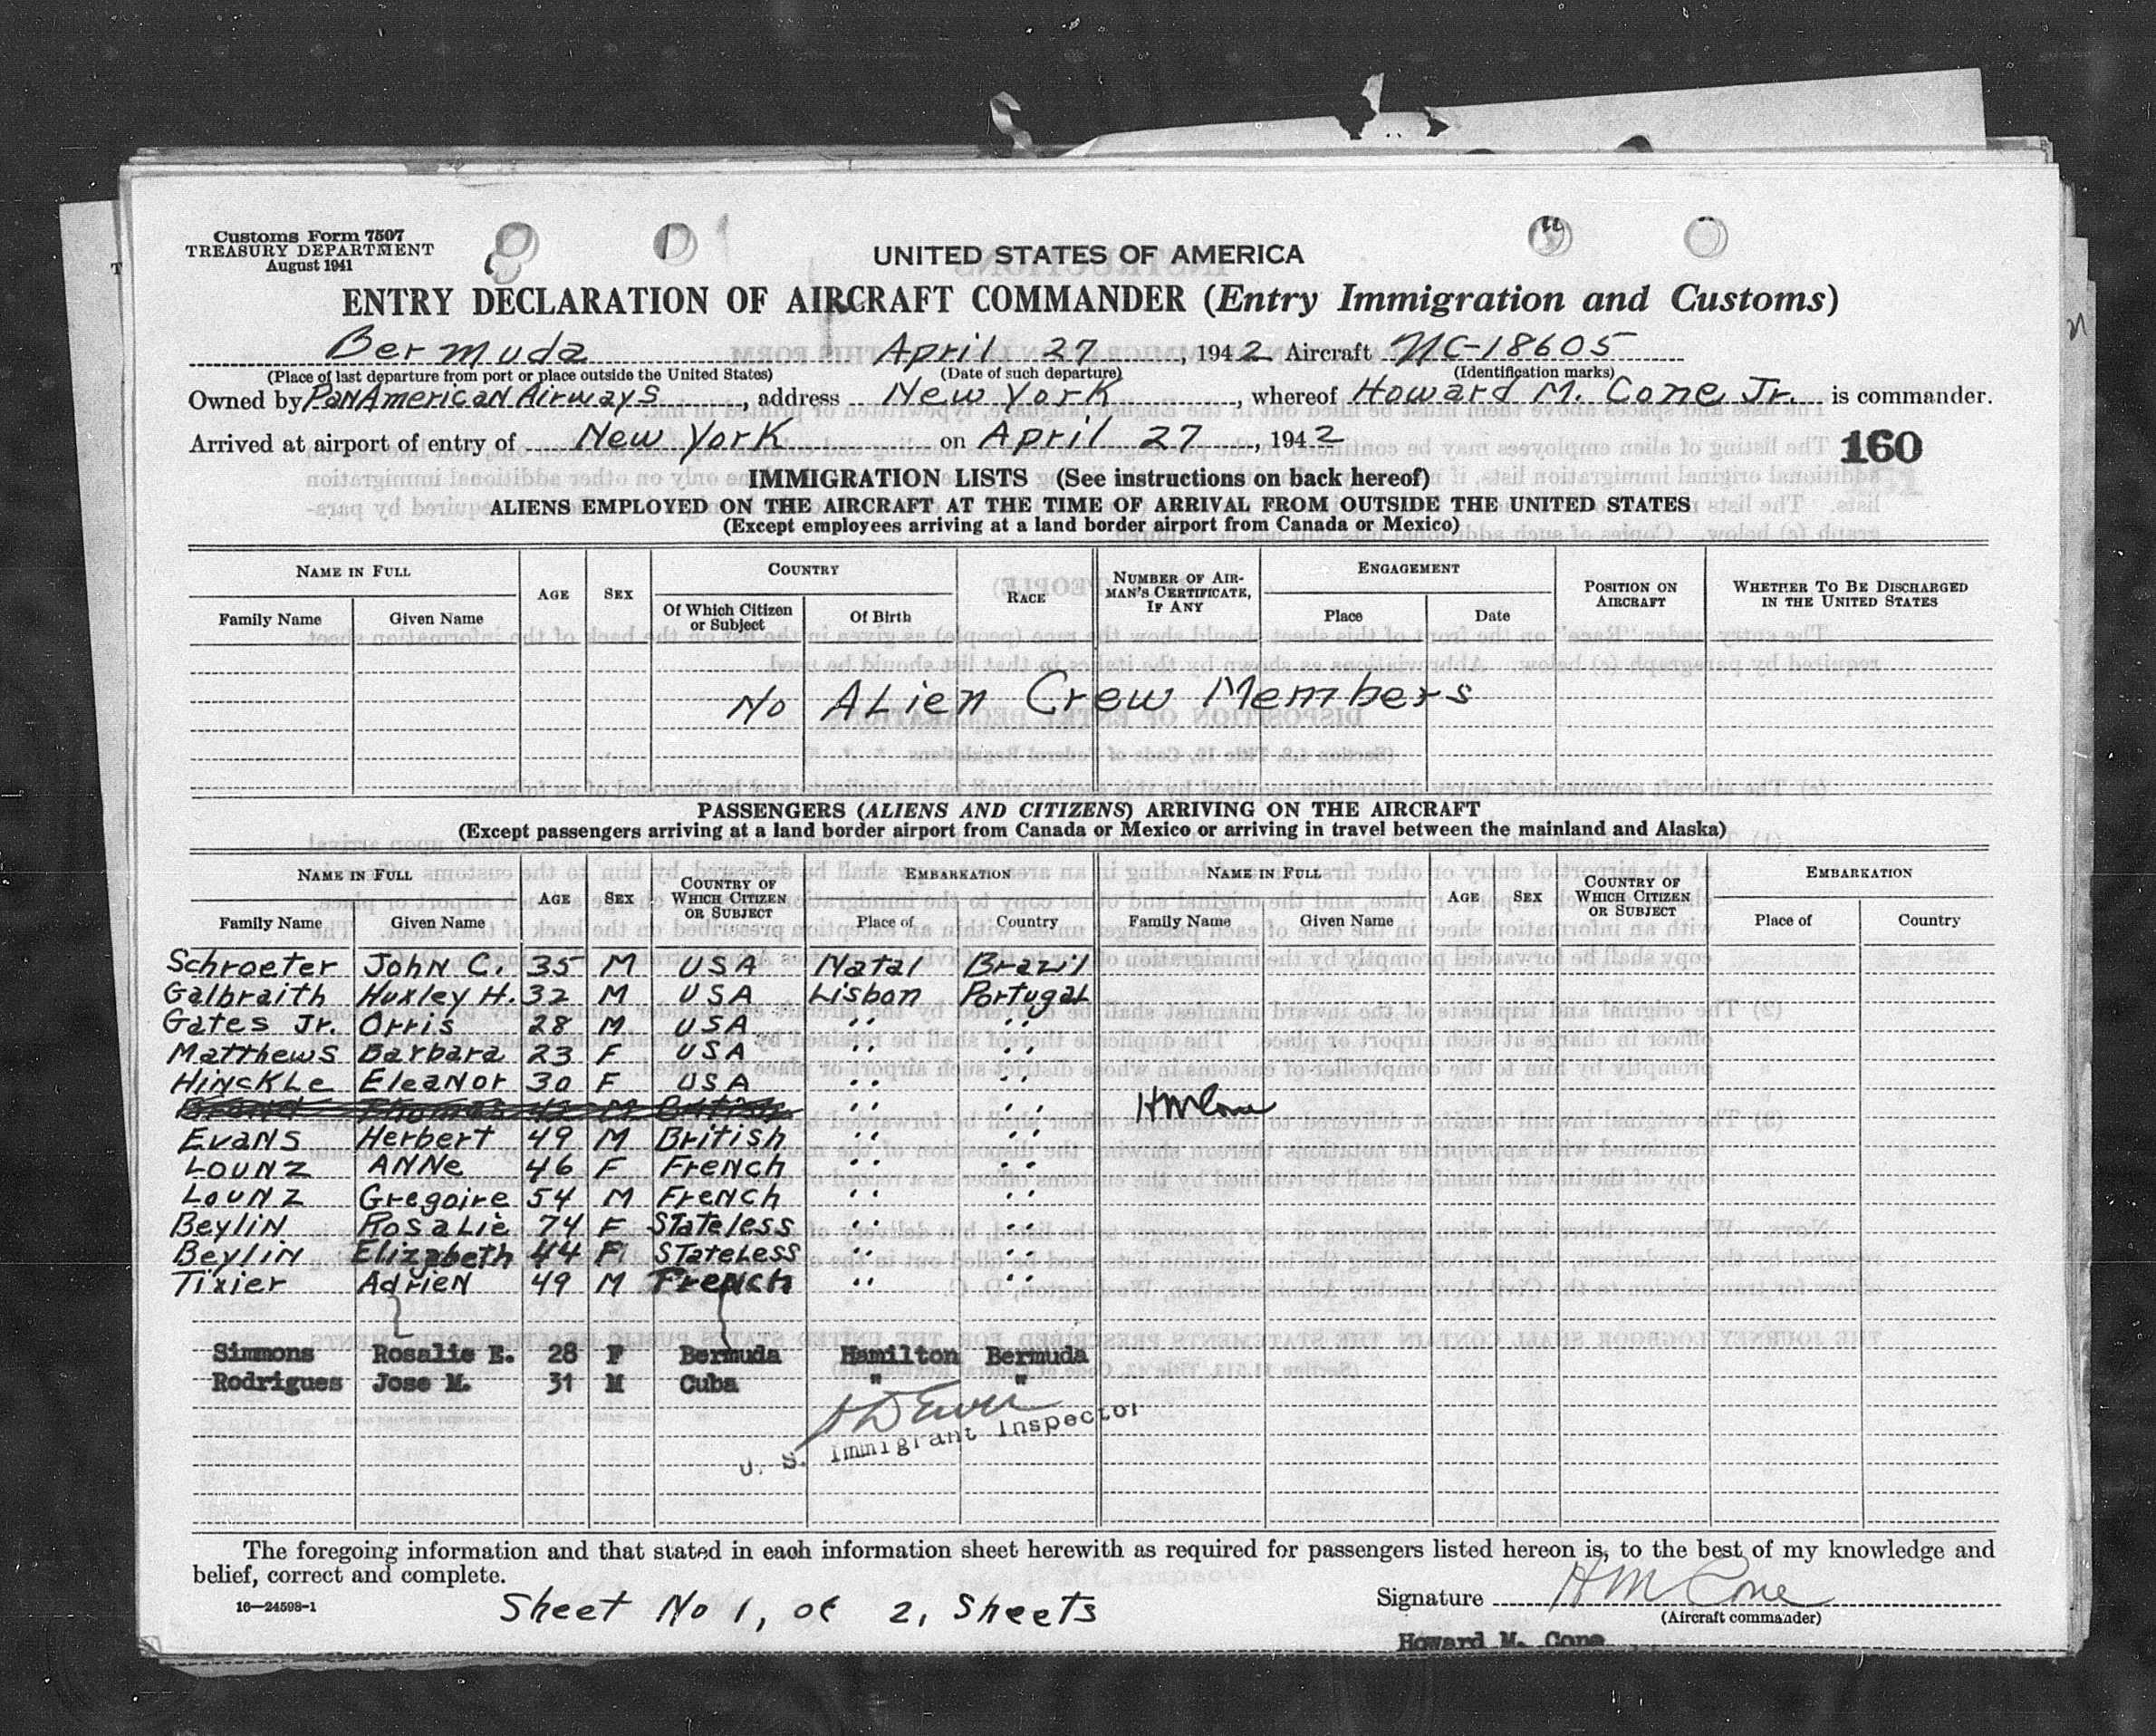 Customs Form 7507
TREASURY DEPARTMENT
August 1941
UNITED STATES OF AMERICA
ENTRY DECLARATION OF AIRCRAFT COMMANDER (Entry Immigration and Customs)
Bermuda April 27, 1942 Aircraft NC-18605
(Place of last departure from port or place outside the United States) (Date of such departure) (Identification marks)
Owned by PanAmerican Airways, address New York, whereof Howard M. Cone, Jr. is commander.
Arrived at airport of entry of New York on April 27, 1942
160
IMMIGRATION LISTS (See instructions on back hereof)
ALIENS EMPLOYED ON THE AIRCRAFT AT THE TIME OF ARRIVAL FROM OUTSIDE THE UNITED STATES
(Except employees arriving at a land border airport from Canada or Mexico)
NAME IN FULL AGE SEX COUNTRY RACE NUMBER OF AIRMAN'S CERTIFICATE, IF ANY ENGAGEMENT POSITION ON AIRCRAFT WHETHER TO BE DISCHARGED IN THE UNITED STATES
Family Name Given Name Of Which Citizen or Subject Of Birth Place Date
No Alien Crew Members
PASSENGERS (ALIENS AND CITIZENS) ARRIVING ON THE AIRCRAFT
(Except passengers arriving at a land border airport from Canada or Mexico or arriving in travel between the mainland and Alaska)
NAME IN FULL AGE SEX COUNTRY OF WHICH CITIZEN OR SUBJECT EMBARKATION NAME IN FULL AGE SEX COUNTRY OF WHICH CITIZEN OR SUBJECT EMBARKATION
Family Name Given Name Place of Country Family Name Given Name Place of Country
Schroeter John C. 35 M USA Natal Brazil
Galbraith Huxley H. 32 M USA Lisbon Portugal
Gates Jr. Orris 28 M USA " "
Matthews Barbara 23 F USA " "
Hinckle Eleanor 30 F USA " "
Thomas M British " " HM Cone
Evans Herbert 49 M British " "
Lounz Anne 46 F French " "
Lounz Gregoire 54 M French " "
Beylin Rosalie 74 F Stateless " "
Beylin Elizabeth 44 F Stateless " "
Tixier Adrien 49 M French " "
Simmons Rosalie E. 28 F Bermuda Hamilton Bermuda
Rodrigues Jose M. 31 M Cuba " "
U. S. Immigrant Inspector
The foregoing information and that stated in each information sheet herewith as required for passengers listed hereon is, to the best of my knowledge and
belief, correct and complete.
16—24598-1
Sheet No 1, of 2, Sheets
Signature HM Cone
(Aircraft commander)
Howard M. Cone